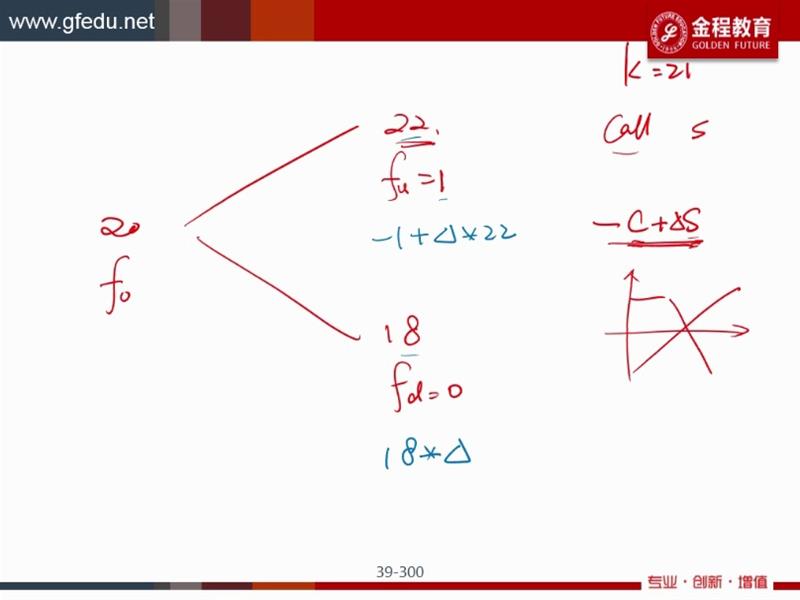 www.gfedu.net
金程教育
GOLDEN FUTURE
K = 21
Call S
22.
fu = 1
-1 + Δ * 22
-C + ΔS
20
f0
18
fd = 0
18 * Δ
39-300
专业·创新·增值